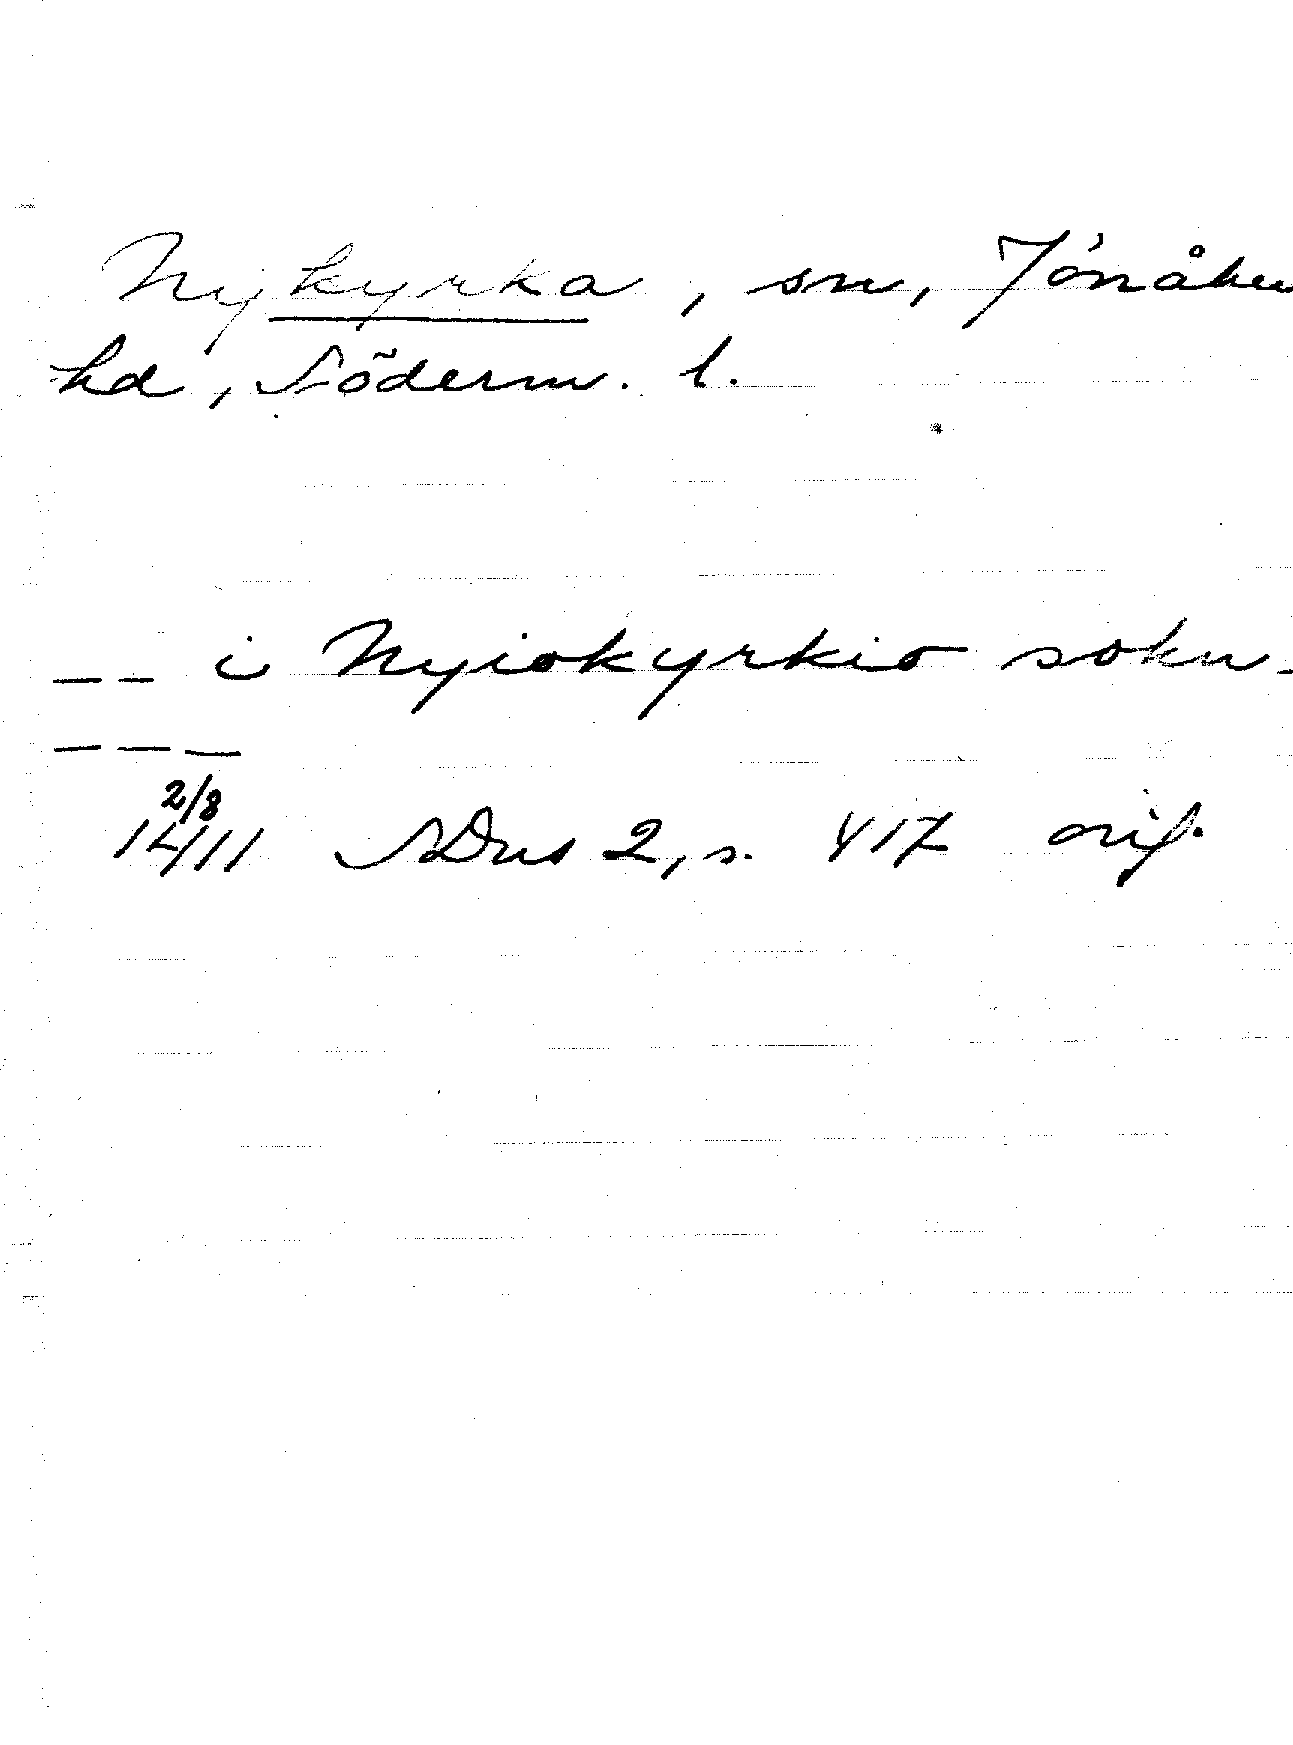 Nykyrka, sn, Jönåkers
hd, Söderm. l.
_ _ i Nyiokyrkio sokn _
_ _ _
2/8
1411 SDns 2, s. 417 orig.